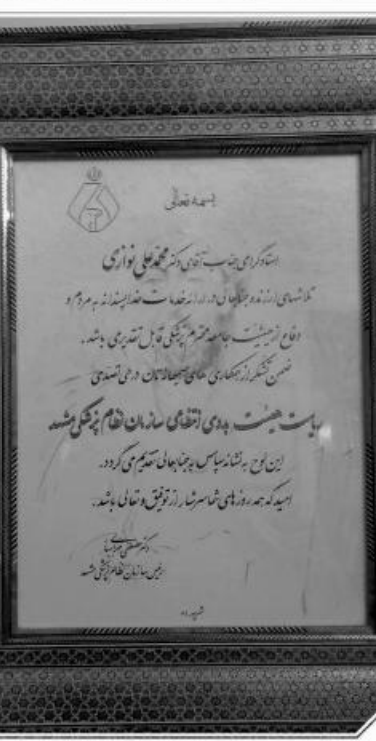 بسمه تعالی
استاد گرامی جناب آقای دکتر محمد علی نوازی
تلاشهای ارزنده جنابعالی در ارائه خدمات خداپسندانه به مردم و
دفاع از حیثیت جامعه محترم پزشکی قابل تقدیر می باشد.
ضمن تشکر از همکاری های صمیمانه تان در طی تصدی
ریاست هیئت بدوی انتظامی سازمان نظام پزشکی مشهد
این لوح به نشانه سپاس به جنابعالی تقدیم می گردد.
امید که همه روزهای شما سرشار از توفیق و تعالی باشد.
دکتر
رئیس سازمان نظام پزشکی مشهد